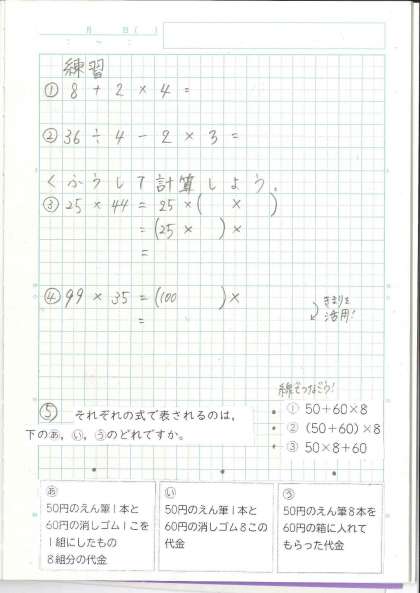 月 日( )
: ~ :
練習
① 8 + 2 × 4 =
② 36 ÷ 4 - 2 × 3 =
くふうして計算しよう。
③ 25 × 44 = 25 × ( × )
= (25 × ) ×
=
④ 99 × 35 = (100 ) ×
=
きまりを
活用!
線でつなごう!
⑤ それぞれの式で表されるのは,
下のあ, い, うのどれですか。
① 50+60×8
② (50+60)×8
③ 50×8+60
あ
50円のえん筆1本と
60円の消しゴム1こを
1組にしたもの
8組分の代金
い
50円のえん筆1本と
60円の消しゴム8この
代金
う
50円のえん筆8本を
60円の箱に入れて
もらった代金